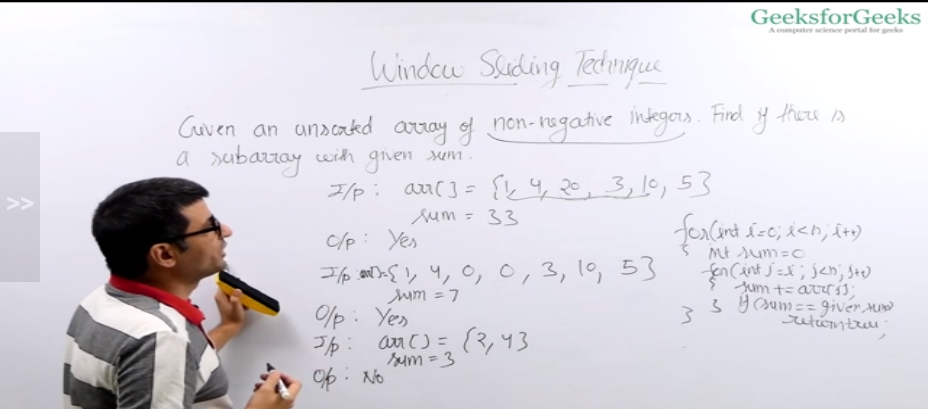 GeeksforGeeks
A computer science portal for geeks
>>
Window Sliding Technique
Given an unsorted array of non-negative integers. Find if there is
a subarray with given sum.
I/p : arr[] = {1, 4, 20, 3, 10, 5}
sum = 33
O/p : Yes
I/p : arr[]={1, 4, 0, 0, 3, 10, 5}
sum = 7
O/p : Yes
I/p : arr[] = {2, 4}
sum = 3
O/p : No
for(int i=0; i<n; i++)
{ int sum=0
for(int j=i; j<n; j++)
{ sum += arr[j];
} if(sum == given sum)
return true;
}